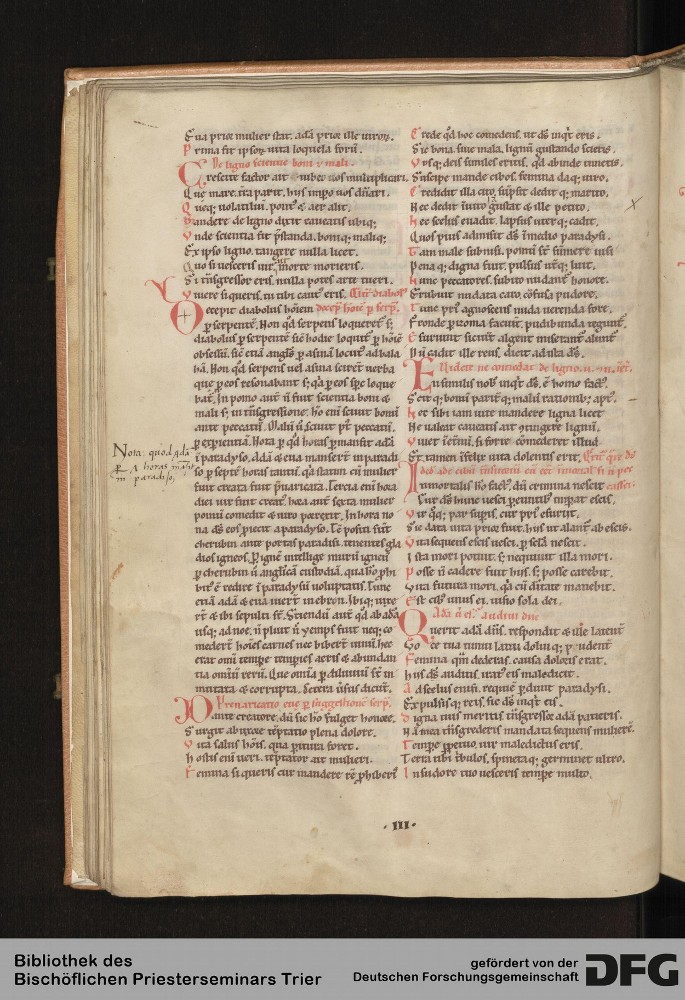 Eua prior mulier stat. adã prior ille uirorũ.
Prima fit ipsorũ uita loquela forũ.
De ligno scientie boni & mali.
Crescite factor ait iubet uos multiplicari.
Que mare, t̃ra parit, hijs impo uos dñari.
Queq; uolatilia, pont⁹ & aer alit.
Mandere de ligno dixit caueatis ubiq;
Vnde scientia fit p̃standa, boniq; maliq;
Ex ipso ligno, tangere nulla licet.
Quo si uesceris uir, morte morieris.
Si t̃nsgressor eris, nulla potes arte tueri.
Viuere si queris, tu tibi caut⁹ eris.
Decepit diabolus hoiem
p serpentẽ. Non qđ serpens loqueret̃ s;
diabolus p serpentẽ sic̃ hodie loquit̃ p hoiẽ
obsessũ. sic̃ etiã angl̃s p asinã locut⁹ ad bala
hã. Non qđ serpens uel asina sciret̃ uerba
que p eos resonabant s; qa p eos sp̃c loque
bat̃. In pomo aut̃ ñ fuit scientia boni &
mali s; in t̃nsgressione. Ho eni sciuit bonũ
ante peccatũ. Malũ ñ sciuit p⁹ peccatũ.
p expientiã. Nota p qđ horas pmansit adã
i paradyso, adã & eua manserũt in paradi
so p septẽ horas tantũ, qa statim cũ mulier
fuit creata fuit p̃uaricata. Tercia eni hora
diei uir fuit creat⁹, hora aut̃ sexta mulier
pomũ comedit & uiro porrexit. In hora no
na d̃s eos proiecit a paradyso. Tc̃ posita sũt
cherubin ante portas paradisi, tenentes gla
dios igneos. p ignẽ intellige murũ igneũ
p cherubin ũ anglicã custodiã. quabȝ phi
bit⁹ ẽ redire i paradysũ uoluptatis. Tunc
etiã adã & eua iuerũt in ebron. Ibiq; uixe
rũt & ibi sepulti st̃. Sciendũ aut̃ qđ ab adã
usq; ad noe, ñ pluit ñ yemps fuit neq; co
mederũt hoĩes carnes nec biberũt uinũ. hec
erat omi tempe tempies aeris & abundan
tia omiũ rerũ. Que omia p diluuiũ st̃ in
mutata & corrupta. Cetera ũsus dicũt.
Preuaricatio eue p suggestionẽ serp̃.
ante creatore, dũ sic hõ fulget honore.
Surgit ab uxore tẽptatio plena dolore.
Vita salus hoĩs, qua pitura foret.
Hostis eni ueri. tẽptator ait mulieri.
Femina si queris cur mandere rẽ phiberis
Nota quod adã
p 7 horas mãsit
in paradiso.
Crede qđ hoc comedens, ut d̃s inqt eris.
Sic bona siue mala, lignũ gustando scietis.
Vosq; deis similes eritis, qđ abinde timetis.
Suscipe mande cibos, femina daq; uiro.
Credidit illa cito, sũpsit dedit q; marito.
Nec dedit iuito gustat & ille petito.
Nec scelus euadit, lapsus uterq; cadit.
Quos pius admisit d̃s i medio paradysi.
Tam male submisi, pomũ st̃ sumere iusi
Pena q; digna fuit, pulsus ut̃q; luit.
Nunc peccatores, subito nudant̃ honore.
Erubuit nudata caro, cõfusa pudore.
Tunc p̃us agnoscens nuda uerenda fore.
Fronde pizoma faciũt, pudibunda tegunt.
Esuriunt sitiũt, algent miserant̃ aliunt̃
Nũ cadit ille reus, dicit ad ista d̃s.
En similis nobȝ inqt d̃s, ẽ homo fact⁹.
Scit q; bonũ parit̃ q; malũ rationibȝ apt⁹.
Nec sibi iam uite mandere ligna licet
Ne ualeat caueatis ait 9tingere lignũ,
Viuet i eternũ, si forte cõmederet illud.
Et tamen infelix uita dolentis erit.
Inmortalis hõ fact⁹, dũ crimina nescit
Cur d̃s hunc uesci peuntibȝ imperat escis,
Vir q; par supis, cur p̃us esurijt.
Sic data uita prior fuit, hijs ut alant̃ ab escis.
Vita sequens escis uesci, p sc̃la nescit.
Ista mori potuit. s; nequiuit illa mori.
Posse ñ cadere fuit hijs. s; posse carebit.
Vita futura mori, qa cũ d̃itate manebit.
Est cibȝ unus ei, uisio sola dei.
Querit adã d̃ñs, respondit & ille latenti
Voce tua timui latui doluiq; pudenti
Femina qm̃ dederas, causa doloris erat.
Hijs d̃s auditis, uxor eis maledicit.
Ad scelus enisi, requiẽ pdiuit paradysi.
Expulsiq; reis, sic d̃s inqt eis.
Digna tuis meritis t̃nsgressor adã patieris.
Nã mea t̃nsgrederis mandata sequens mulierẽ.
Tempe ppetuo, uir maledictus eris.
Terra tibi tribulos, spinetaq; germinet ultro.
In sudore tuo uesceris tempe multo.
· III ·
Bibliothek des
Bischöflichen Priesterseminars Trier
gefördert von der
Deutschen Forschungsgemeinschaft
DFG